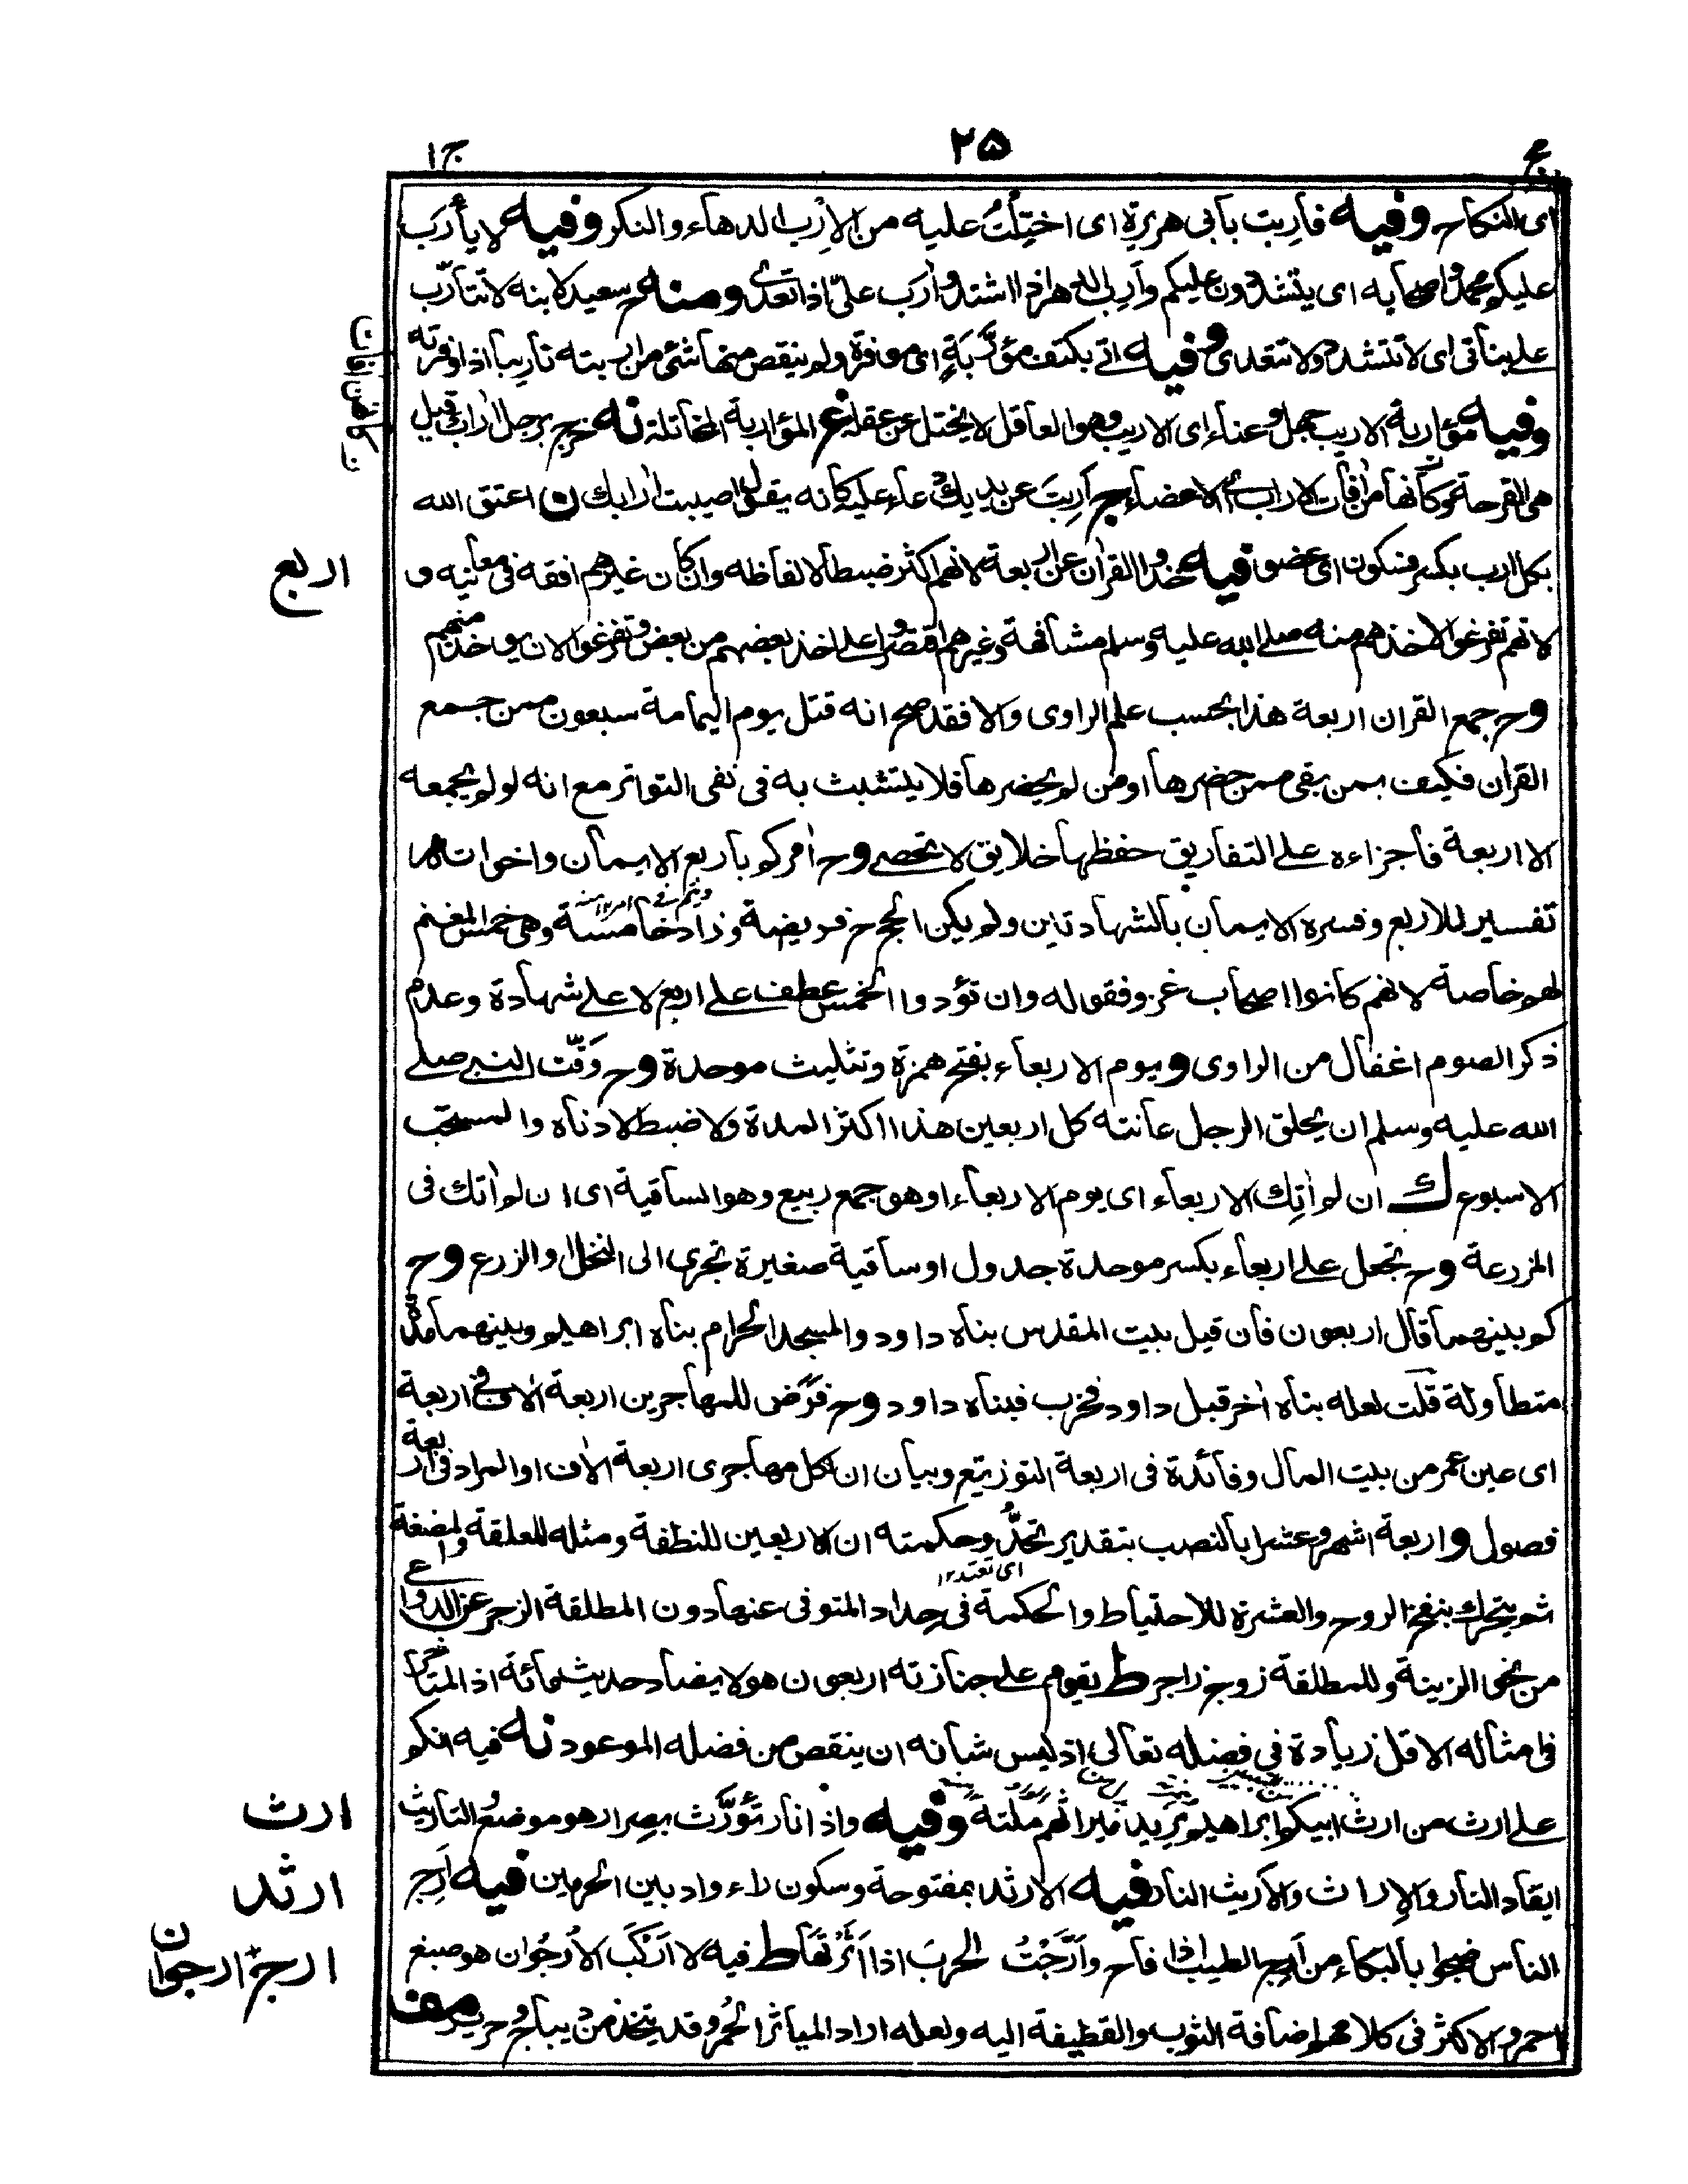 مج
٢٥
ج ١
اى النكاح وفيه فأربت بأبى هريرة اى اختلت عليه من الإرب الدهاء والنكر وفيه لا يأرب
عليكم محمد واصحابه اى يتشددون عليكم وأرب الدهر اذا اشتد وأرب علىّ اذا تعدى ومنه ح سعيد لابنه لا تتأرب
على بناتى اى لا تتشدد ولا تتعدى وفيه اتى بكتف مؤرّبة اى موفرة ولم ينقص منها شئ من اربته تأريبا اذا وفرته
وفيه مؤاربة الاريب جهل وعناء اى الاريب وهو العاقل لا يختل عن عقله غ المؤاربة المخاتلة نه خرج برجل أراب قيل
هى القرحة وكأنها من أفات الأراب الاعضاء ج أربت عن يديك دعاء عليه كانه يقول اصيبت أرابك ن اعتق الله
بكل ارب بكسر فسكون اى عضو فيه خذوا القرأن عن اربعة لانهم اكثر ضبطا لالفاظه وان كان غيرهم افقه فى معانيه و
لانهم تفرغوا لاخذهم منه صلى الله عليه وسلم مشافهة وغيرهم اقتصروا على اخذ بعضهم من بعض وتفرغوا لان يوخذ منهم
وح جمع القرأن اربعة هذا بحسب علم الراوى والا فقد صح انه قتل يوم اليمامة سبعون ممن جمع
القرأن فكيف بمن بقى ممن حضرها ومن لم يحضرها فلا يتشبث به فى نفى التواتر مع انه لو لم يجمعه
الا اربعة فأجزاءه على التفاريق حفظها خلايق لا تحصى وح أمركم باربع الايمان واخواته
تفسير للاربع وفسره الايمان بالشهادتين ولم يكن الحج ح فريضة وزاد خامسة وهى خمس المغنم
لهم خاصة لانهم كانوا اصحاب غزو فقوله وان تؤدوا الخمس عطف على اربع لا على شهادة وعدم
ذكر الصوم اغفال من الراوى ويوم الاربعاء بفتح همزة وتثليث موحدة وح وقّت النبى صلى
الله عليه وسلم ان يحلق الرجل عانته كل اربعين هذا اكثر المدة ولا ضبط لادناه والمستحب
الاسبوع ك ان لم أتك الاربعاء اى يوم الاربعاء او هو جمع ربيع وهو الساقية اى ان لم أتك فى
المزرعة وح تجعل على اربعاء بكسر موحدة جدول او ساقية صغيرة تجرى الى النخل والزرع وح
كم بينهما قال اربعون فان قيل بيت المقدس بناه داود والمسجد الحرام بناه ابراهيم وبينهما مدة
متطاولة قلت لعله بناه أخر قبل داود فخرب فبناه داود وح فرّض للمهاجرين اربعة ألاف فى اربعة
اى عين عمر من بيت المال وفائدة فى اربعة التوزيع وبيان ان لكل مهاجرى اربعة الأف او المراد فى اربعة
فصول واربعة اشهر وعشرا بالنصب بتقدير تحدّ وحكمته ان الاربعين للنطفة ومثله للعلقة والمضغة
ثم يتحرك بنفخ الروح والعشرة للاحتياط والحكمة فى حداد المتوفى عنها دون المطلقة الزجر عن الدواعى
اى تعتد ١٢
من نحو الزينة وللمطلقة زوج زاجر ط يقوم على جنازته اربعون هو لا يضاد حديث مائة اذ المتأخر
فى امثاله الاقل زيادة فى فضله تعالى اذ ليس شانه ان ينقص من فضله الموعود نه فيه انكم
على ارث من ارث ابيكم ابراهيم يريد ميراثهم ملته وفيه واذا نار تؤرّث بصرار هو موضع التأريث
ايقاد النار والإراث والأريث النار فيه الارثد بمفتوحة وسكون راء واد بين الحرمين فيه أرج
الناس ضجوا بالبكاء من أرج الطيب اذا فاح وأرّجت الحرب اذا اثرتها ط فيه لا اركب الأرجوان هو صبغ
احمر والاكثر فى كلامهم اضافة الثوب والقطيفة اليه ولعله اراد المياثر الحمر وقد يتخذ من ديباج وحرير مف
اربع
ارث
ارثد
ارج ارجوان